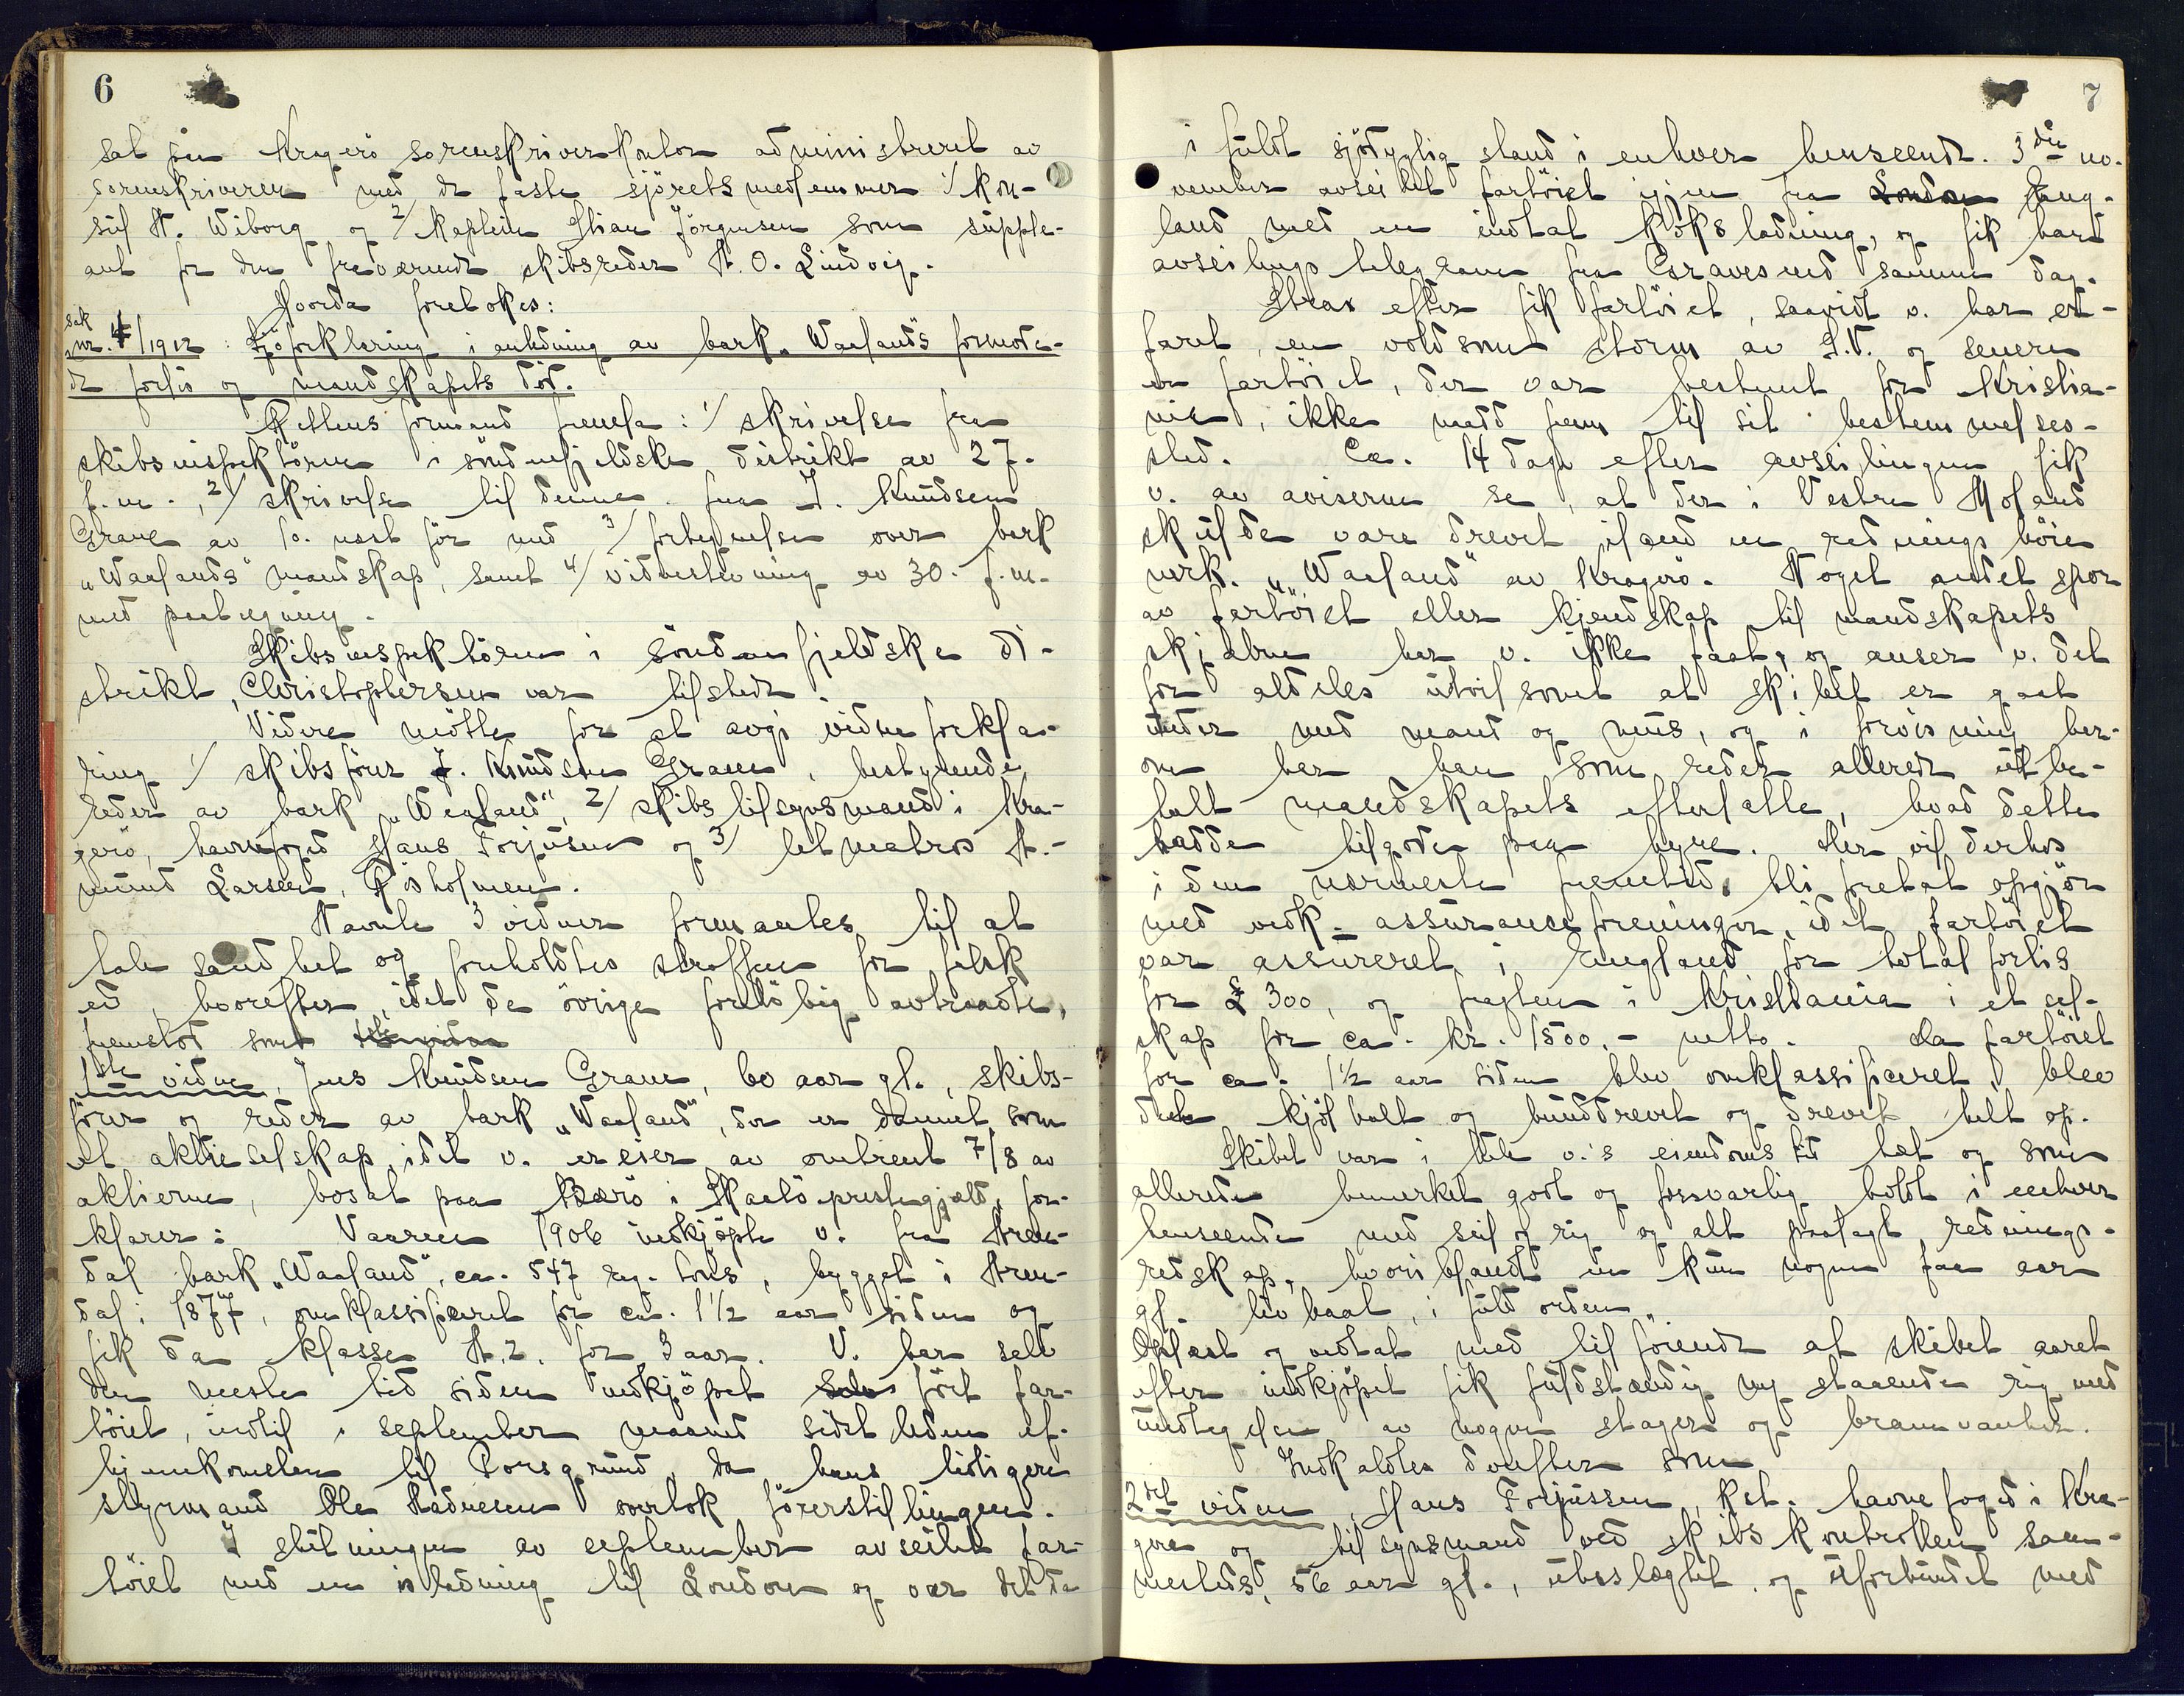 6
sat paa Kragerö sorenskriverkontor administreret av
sorenskriveren med de faste sjöretsmedlemmer 1/ kon-
sul N. Wiborg og 2/ kaptein Stian Jörgensen som supple-
ant for den fraværende skibsreder N. O. Lindvig.
Hvorda foretokes:
sak
nr. 4/1912: Sjöforklaring i anledning av bark „Waalands formode-
de forlis og mandskapets död.
Rettens formand fremla: 1/ skrivelse fra
skibsinspektören i söndenfjeldske distrikt av 27.
f.m., 2/ skrivelse til denne fra J. Knudsen
Grave av 10. næst för med 3/ fortegnelse over bark
„Waalands" mandskap, samt 4/ vidnestevning av 30. f.m.
med paategning.
Skibsinspektören i söndenfjeldske di-
strikt, Christophersen var tilstede.
Videre mötte for at avgi vidneforkla-
ring 1/ skibsförer J. Knudsen Grave, bestyrende
reder av bark „Waaland", 2/ skibstilsynsmand i Kra-
gerö, havnefoged Hans Forjusen og 3/ letmatros A.-
mund Larsen, Rosholmen.
Nævnte 3 vidner formantes til at
tale sandhet og foreholdtes straffen for falsk
ed, hvorefter, idet de övrige forelöbig avtraadte,
fremstod som
1ste vidne, Jens Knudsen Grave, 60 aar gl., skibs-
förer og reder av bark „Waaland", der er dannet som
et aktieselskap, idet v. er eier av omtrent 7/8 av
aktierne, bosat paa Bærö i Skaatö prestegjæld, for-
klarer: Vaaren 1906 indkjöpte v. fra Aren-
dal bark „Waaland", ca. 547 reg. tons, bygget i Aren-
dal i 1877, omklassificeret for ca. 1½ aar siden og
fik da klasse A.2. for 3 aar. V. har selv
den meste tid siden indkjöpet fört far-
töiet, indtil i september maaned sidstleden ef.
hjemkomsten til Porsgrund, da hans tidligere
styrmand Ole Madsen overtok förerstillingen.
I slutningen av september avseilte far-
töiet med en isladning til London og var det da
7
i fuldt sjödygtig stand i enhver henseende. 3die no-
vember avseilet fartöiet igjen fra London Eng-
land med en indtat koksladning, og fik han
avseilingstelegram fra Gravesend samme dag.
Strax efter fik fartöiet, saavidt v. har er-
faret, en voldsom storm av S.V. og senere
er fartöiet, der var bestemt for Kristia-
nia, ikke naadd frem til sit bestemmelses-
sted. Ca. 14 dage efter avseilingen fik
v. av aviserne se, at der i Vestre Holand
skulde være drevet iland en redningsböie
merk. „Waaland" av Kragerö. Noget andet spor
av fartöiet eller kjendskap til mandskapets
skjæbne har v. ikke faat, og anser v. det
for aldeles utvilsomt at skibet er gaat
under med mand og mus, og i forvisning her-
om har han som reder allerede utbe-
talt mandskapets efterlatte, hvad dette
hadde tilgode paa hyre. Der vil derhos
i den nærmeste fremtid bli foretat opgjör
med vedk. assuranceforeninger, idet fartöiet
var assureret i England for total forlis
for £ 300, og fragten i Kristiania i et sel-
skap for ca. kr. 1500.- netto. Da fartöiet
for ca. 1½ aar siden blev omklassificeret, blev
dets kjöl halt og bunddrevet og drevet helt op.
Skibet var i hele v.'s eiendomstid tæt og som
allerede bemerket godt og forsvarlig holdt i enhver
henseende med seil og rig og alt paalagt rednings-
redskap, hvoriblandt en kun nogen faa aar
gl. livbaat, i fuld orden.
Oplæst og vedtat med tilföiende at skibet aaret
efter indkjöpet fik fuldstændig ny staaende rig med
undtagelse av nogen stager og bramvanter.
Indkaldtes derefter som
2det vidne, Hans Forjussen, kst. havnefoged i Kra-
gerö og tilsynsmand ved skibskontrollen sam-
mesteds, 56 aar gl., ubeslægtet og uforbundet med